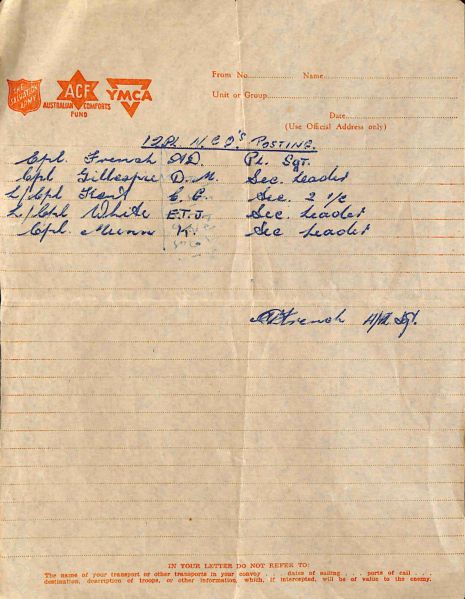 THE SALVATION ARMY
ACF
AUSTRALIAN COMFORTS FUND
YMCA
From No............ Name............
Unit or Group............
Date............
(Use Official Address only)
12 PL N.C.O's. POSTING.
Cpl. French A.D. Pl. Sgt.
Cpl Gillespie D. M. Sec. Leader
L/Cpl Kent E. G. Sec. 2 i/c
L/Cpl White E.T.J. Sec. Leader
Cpl. Munn K. Sec Leader
French A/Pl Sgt.
IN YOUR LETTER DO NOT REFER TO:
The name of your transport or other transports in your convoy . . . dates of sailing . . . ports of call . . .
destination, description of troops, or other information, which, if intercepted, will be of value to the enemy.